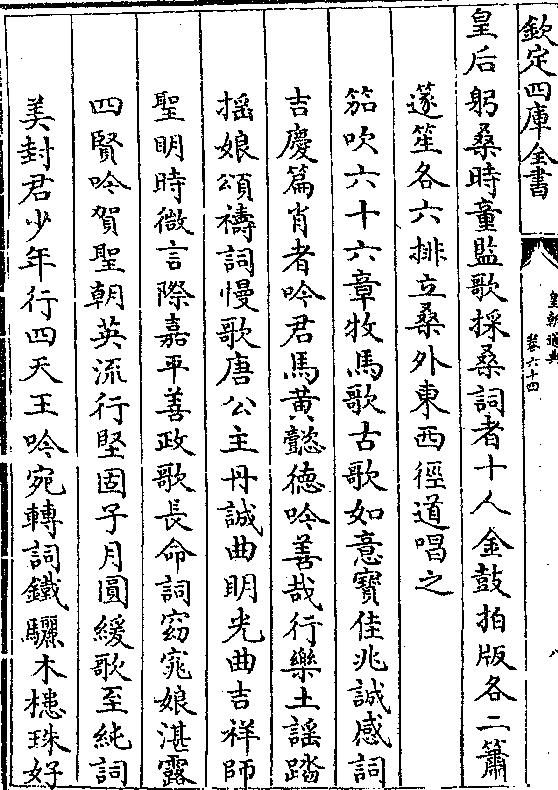 欽定四庫全書
皇朝通典
卷六十四
八
皇后躬桑時童監歌採桑詞者十人金鼓拍版各二簫
篴笙各六排立桑外東西徑道唱之
笳吹六十六章牧馬歌古歌如意寶佳兆誠感詞
吉慶篇肖者吟君馬黃懿德吟善哉行樂土謡踏
揺娘頌禱詞慢歌唐公主丹誠曲明光曲吉祥師
聖明時微言際嘉平善政歌長命詞窈窕娘湛露
四賢吟賀聖朝英流行堅固子月圓緩歌至純詞
美封君少年行四天王吟宛轉詞鐵驪木槵珠好